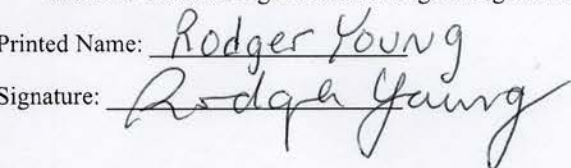 Printed Name: Rodger Young
Signature: Rodger Young